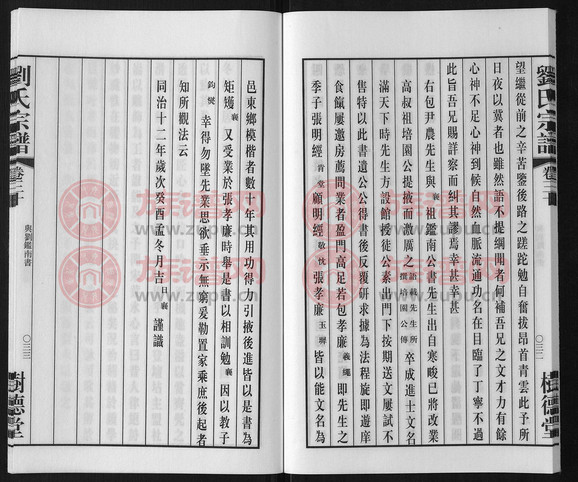 劉氏宗譜
卷二十
〇三二
樹德堂
望繼從前之辛苦鑒後路之蹉跎勉自奮拔昂首青雲此予所
日夜以冀者也雖然語不提綱閱者何補吾兄之文才力有餘
心神不足心神到候自然血脈流通功名在目臨了丁寧不過
此旨吾兄賜詳察而糾其謬焉幸甚幸甚
右包尹農先生與襄祖鑑南公書先生出自寒畯已將改業
高叔祖培園公提掖而激厲之語載先生所撰培園公傳卒成進士文名
滿天下時先生方設館授徒公素出門下按期送文屢試不
售特以此書遺公公得書後反覆研求據為法程旋即遊庠
食餼屢邀房薦問業者盈門高足若包孝廉義繩即先生之
季子張明經肯堂顧明經敬忱張孝廉玉墀皆以能文名為
邑東鄉模楷者數十年其用功得力引掖後進皆以是書為
矩矱襄又受業於張孝廉時舉是書以相訓勉襄因以教子
鈞燮幸得勿墜先業思欲垂示無窮爰勒置家乘庶後起者
知所觀法云
同治十二年歲次癸酉孟冬月吉旦襄謹識
劉氏宗譜
卷二十
與劉鑑南書
〇三三
樹德堂
www.zupu.cn
www.zupu.cn